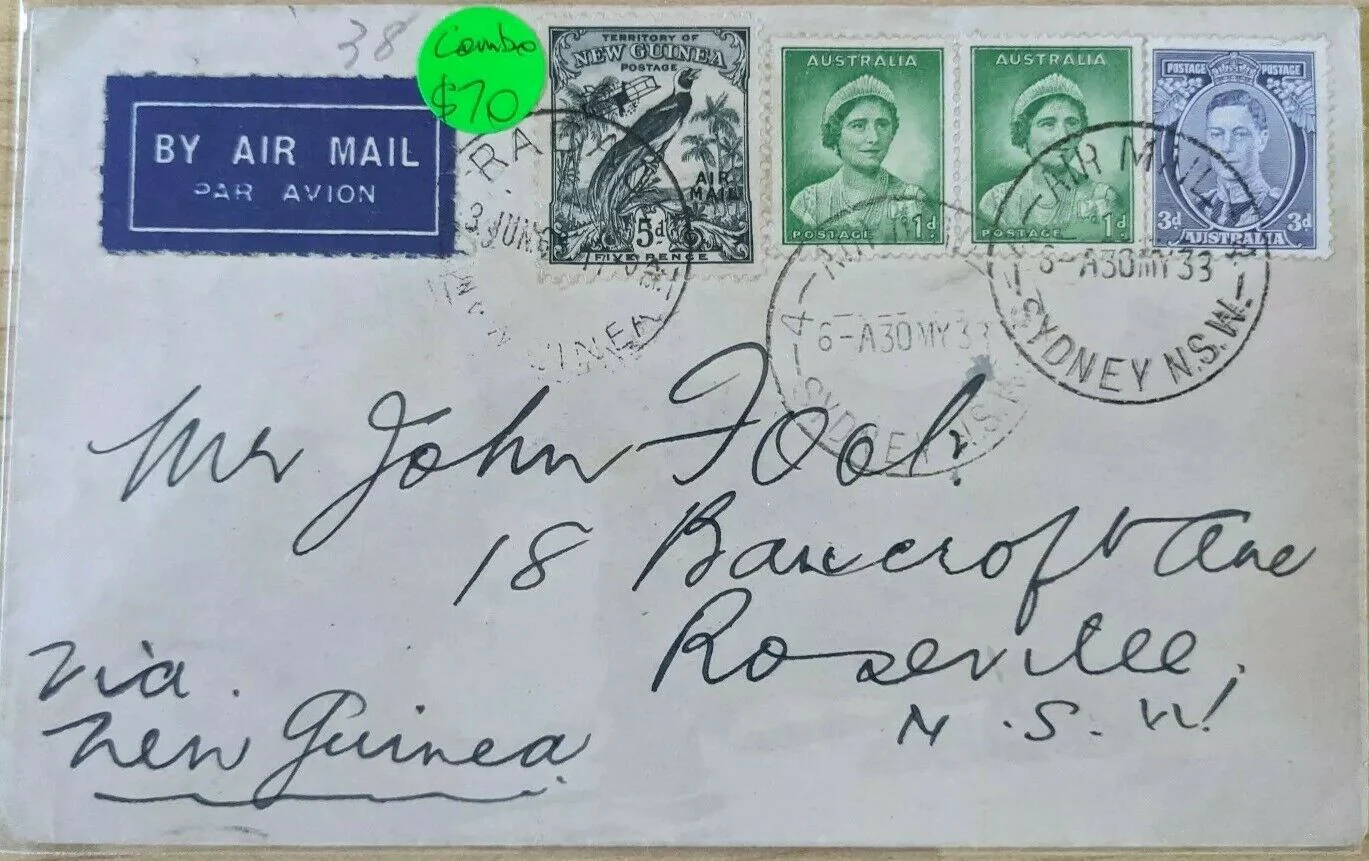 38
Combo
$70
BY AIR MAIL
PAR AVION
TERRITORY OF
NEW GUINEA
POSTAGE
AIR
MAIL
5d
FIVE PENCE
AUSTRALIA
POSTAGE
1d
AUSTRALIA
POSTAGE
1d
POSTAGE POSTAGE
3d 3d
AUSTRALIA
RA
3 JUN
GUINEA
4- AIR M
6-A30MY33
SYDNEY N.S.W.
AIR MAIL
6-A30MY33
SYDNEY N.S.W.
Mr John Fool.
18 Bancroft Ave
Roseville.
N.S.W!
Via.
New Guinea.